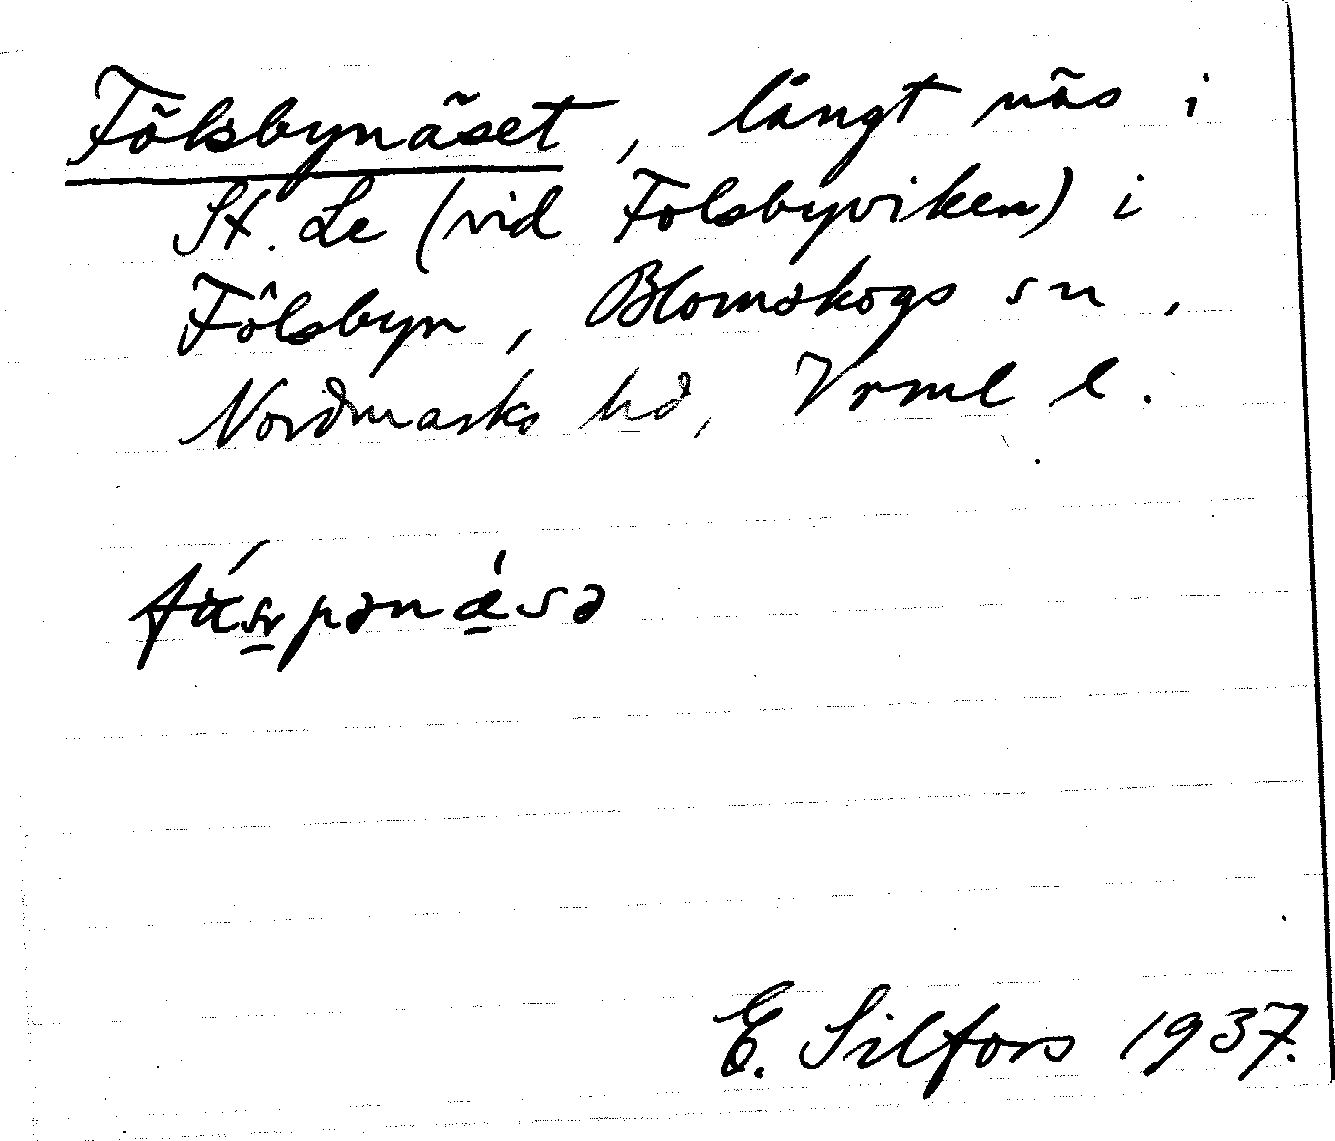 Fölsbynäset, långt näs i
St. Le (vid Fölsbyviken) i
Fölsbyn, Blomskogs sn,
Nordmarks hd, Vrml l.
E. Silfors 1937.